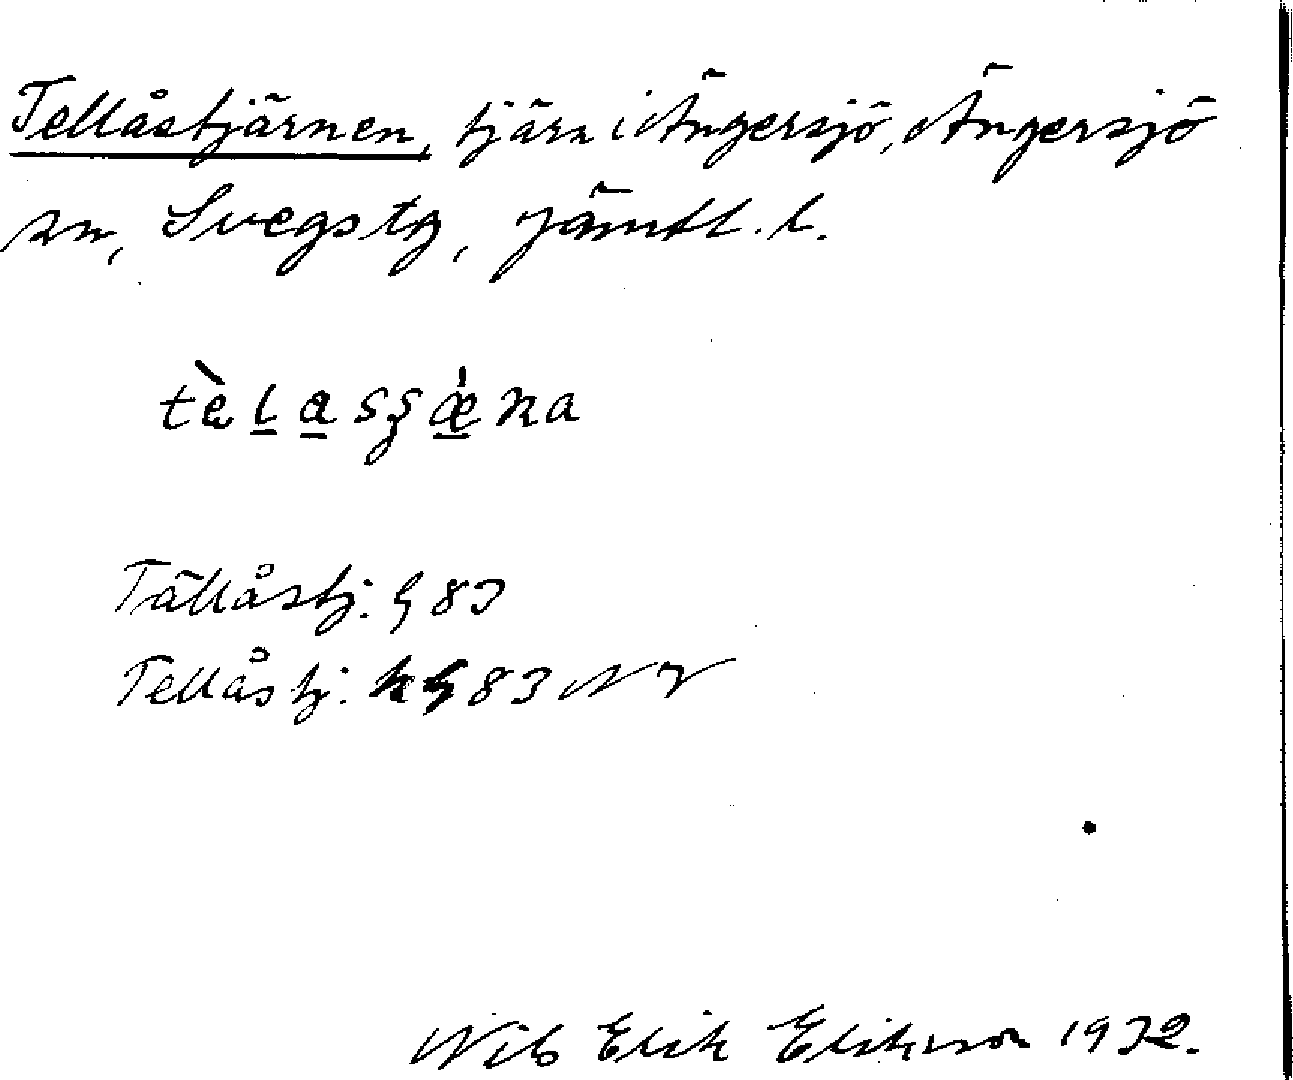 Tellåstjärnen, tjärn i Ängersjö, Ängersjö
sn, Svegs tg, Jämtl. l.
tèlasʂæ̀na
Tällåstj. G 83
Tellåstj. 83 NV
Nils Erik Eriksson 1932.